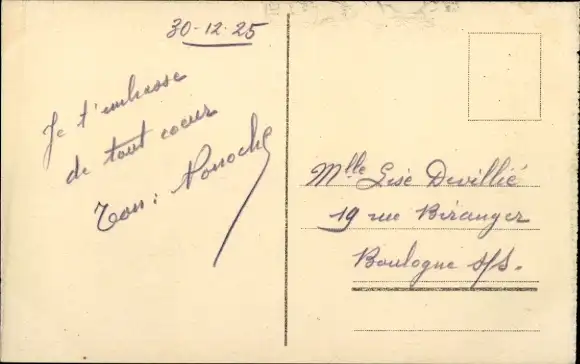 30-12-25
Je t'embrasse
de tout coeur
Ton: Nonoche
Mlle Lise Devillié
19 rue Béranger
Boulogne s/s.